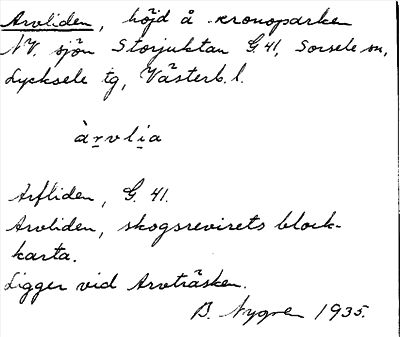 Arvliden, höjd å kronoparken
NV. sjön Storjuktan G. 41, Sorsele sn,
Lycksele tg, Västerb. l.
àrvlia
Arfliden, G. 41.
Arvliden, skogsrevirets block-
karta.
Ligger vid Arvträsken.
B. Nygren 1935.